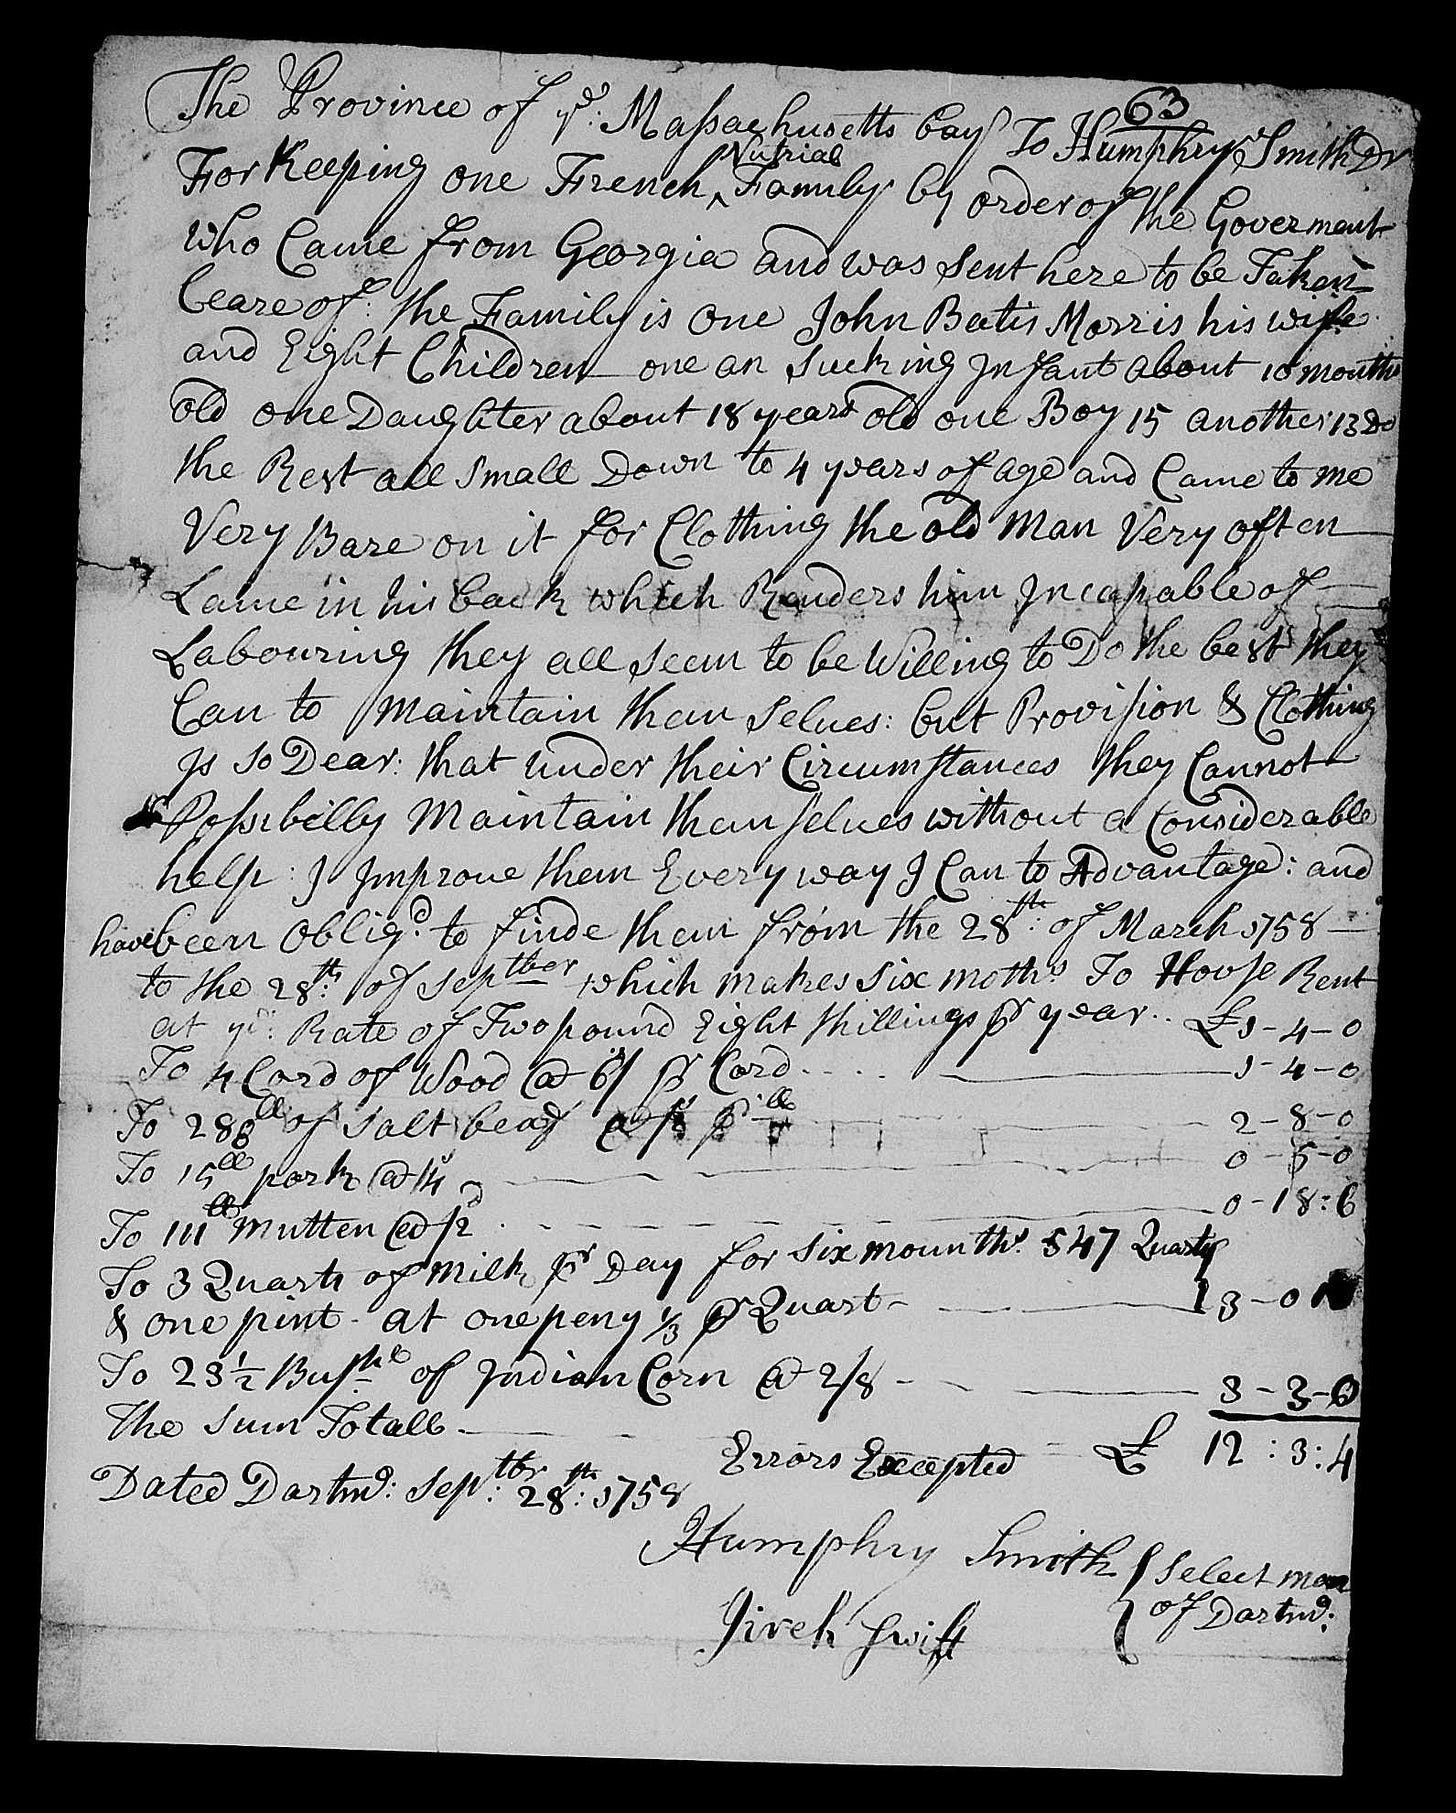 63
The Province of ye: Massachusetts bay To Humphry Smith Dr
For Keeping one French ^Nutrial Family by order of the Goverment
who Came from Georgia and was Sent here to be Taken
Ceare of: the Family is one John Batis Morris his wife
and Eight Children one an Sucking Infant about 10 months
old one Daughter about 18 years old one Boy 15 another 13 Do
the Rest all Small Down to 4 years of age and Came to me
Very Bare on it for Clothing the old Man Very often
Lame in his back which Renders him Incapable of
Labouring they all seem to be Willing to Do the best they
Can to Maintain them Selues: but Provission & Clothing
Is so Dear: that under their Circumstances they Cannot
Possibelly Maintain themselues without a Considerable
help: I Improue them Every way I Can to Advantage: and
have been Oblig'd to finde them from the 28th: of March 1758
to the 28th: of Septber which makes Six moths To House Rent
at ye: Rate of Two pound Eight shillings pr year.. £1-4-0
To 4 Cord of Wood @ 6/ pr Cord.... 1-4-0
To 288ll of Salt beaf @ /2 pr ll 2-8-0
To 15ll pork @ /4 0-5-0
To 111ll Mutten @ /2d 0-18:6
To 3 Quarts of Milk pr Day for Six mounths. 547 Quarts
& one pint at one peny 1/3 pr Quart 3-0
To 23 1/2 Bushl of Indian Corn @ 2/8 3-3-0
The Sum Totall Errors Excepted £ 12:3:4
Dated Dartmo: Septbr: 28th: 1758
Humphry Smith } Select men
Jireh Swift } of Dartmo: